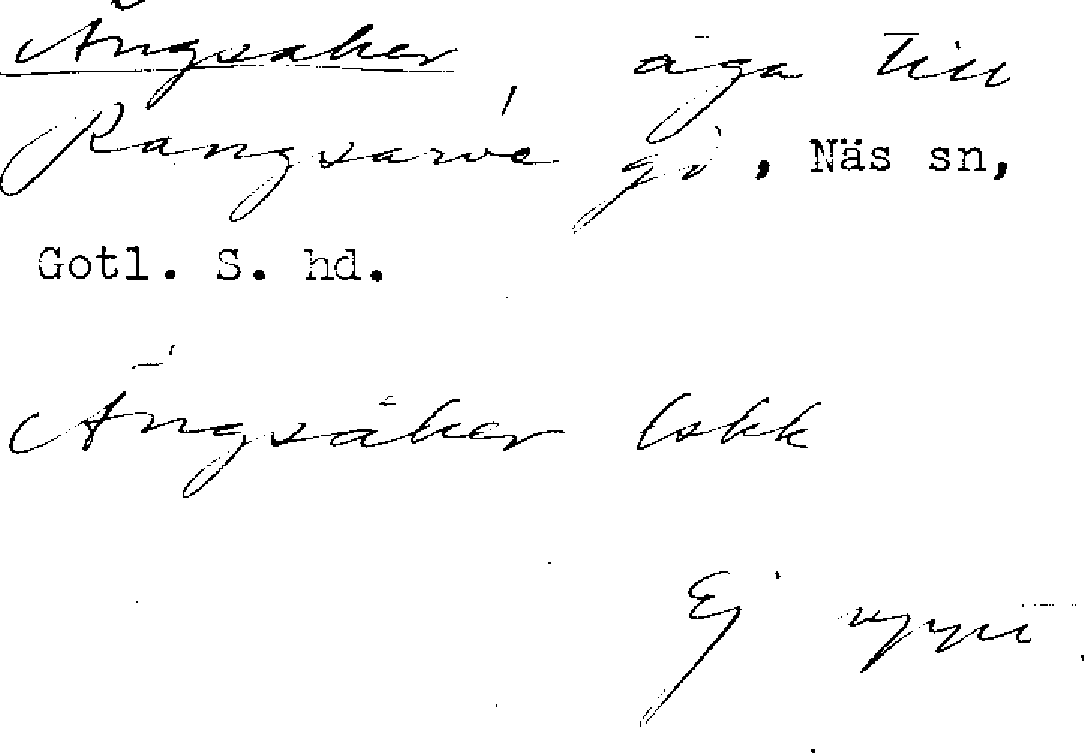 Ängsåker äga till
Rangsarve gd, Näs sn,
Gotl. S. hd.
Ängsåker lskk
Ej uppt.